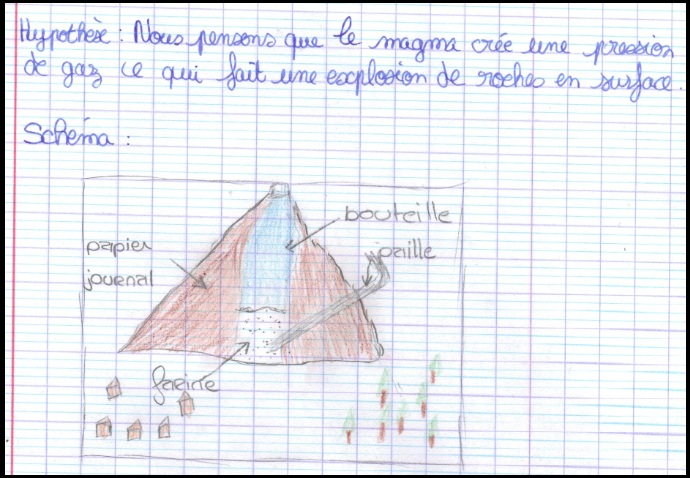 Hypothèse : Nous pensons que le magma crée une pression
de gaz ce qui fait une explosion de roches en surface.
Schéma :
bouteille
papier
journal
paille
farine